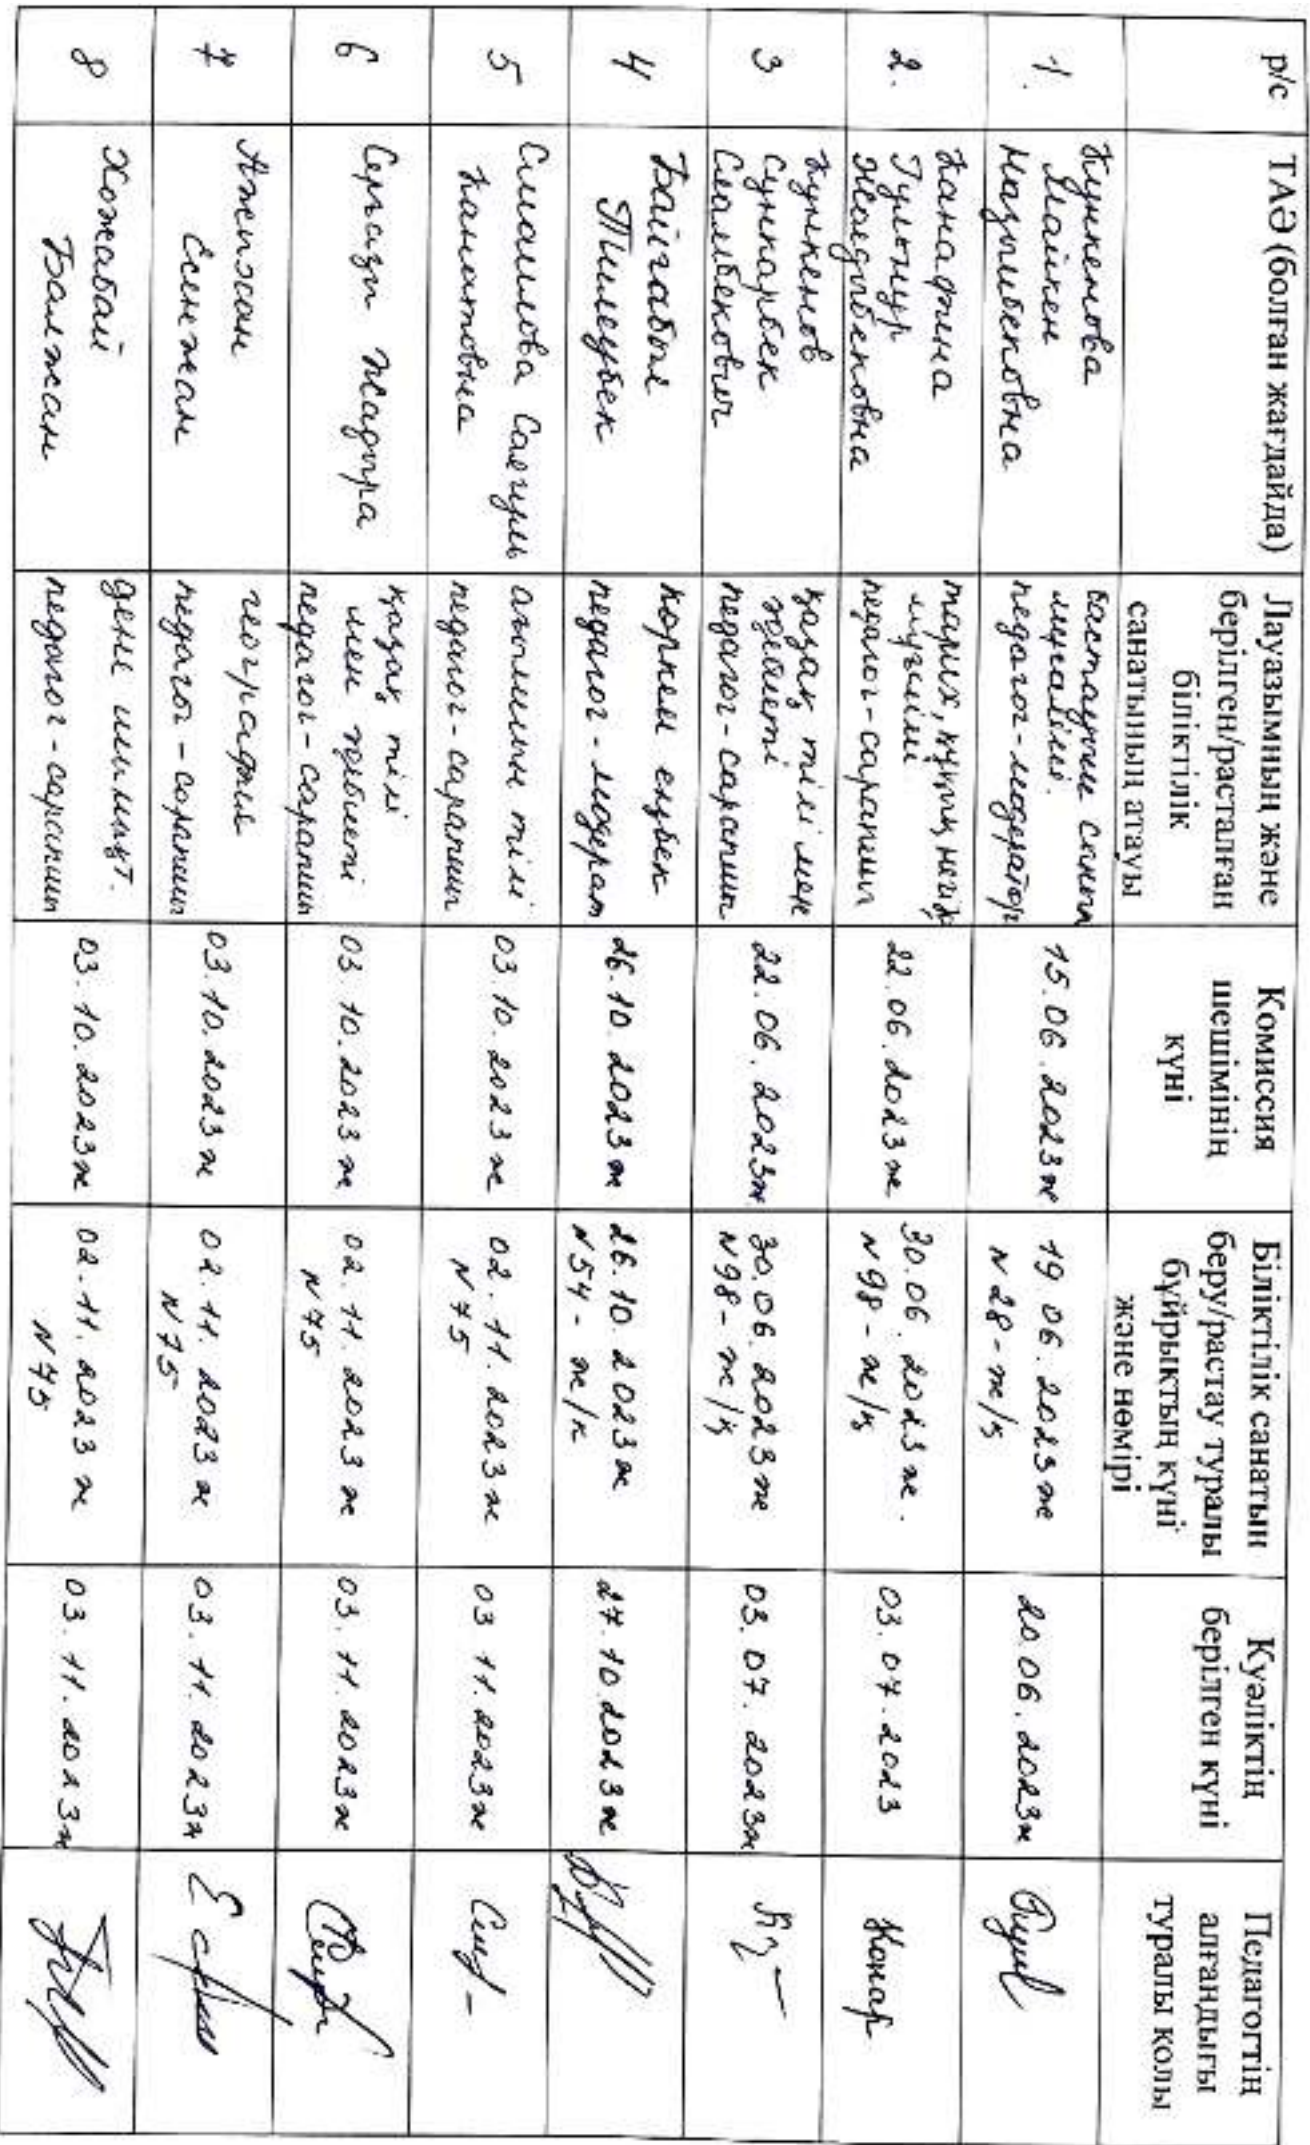 р/с
ТАӘ (болған жағдайда)
Лауазымның және
берілген/расталған
біліктілік
санатының атауы
Комиссия
шешімінің
күні
Біліктілік санатын
беру/растау туралы
бұйрықтың күні
және нөмірі
Куәліктің
берілген күні
Педагогтің
алғандығы
туралы қолы
1.
Кункенова
Назымбековна
бастауыш сынып
мұғалімі.
педагог-модератор
15.06.2023ж
19 06.2023ж
N28-ж/қ
20.06.2023ж
2.
Канафина
Гульнур
Жолдыбековна
тарих, құқық негізд
мұғалімі
педагог-сарапшы
22.06.2023ж
30.06.2023ж.
N98-ж/қ
03.07.2023
3
Кункенов
Сункарбек
Слямбекович
қазақ тілі мен
әдебиеті
педагог-сарапшы
22.06.2023ж
30.06.2023ж
N98-ж/қ
03.07.2023ж
4
Байгабыл
Тилеубек
көркем еңбек
педагог-модерат
26.10.2023ж
26.10.2023ж
N54-ж/к
27.10.2023ж
5
Смаилова Саягуль
Канатовна
ағылшын тілі
педагог-сарапшы
03.10.2023ж
02.11.2023ж
N75
03 11.2023ж
6
Серғазы Жадыра
қазақ тілі
мен әдебиеті
педагог-сарапшы
03.10.2023ж
02.11.2023ж
N75
03.11.2023ж
7
Есенжан
география
педагог-сарапшы
03.10.2023ж
02.11.2023ж
N75
03.11.2023ж
8
Хожабай
Балжан
дене шынықт.
педагог-сарапшы
03.10.2023ж
02.11.2023ж
N75
03.11.2023ж